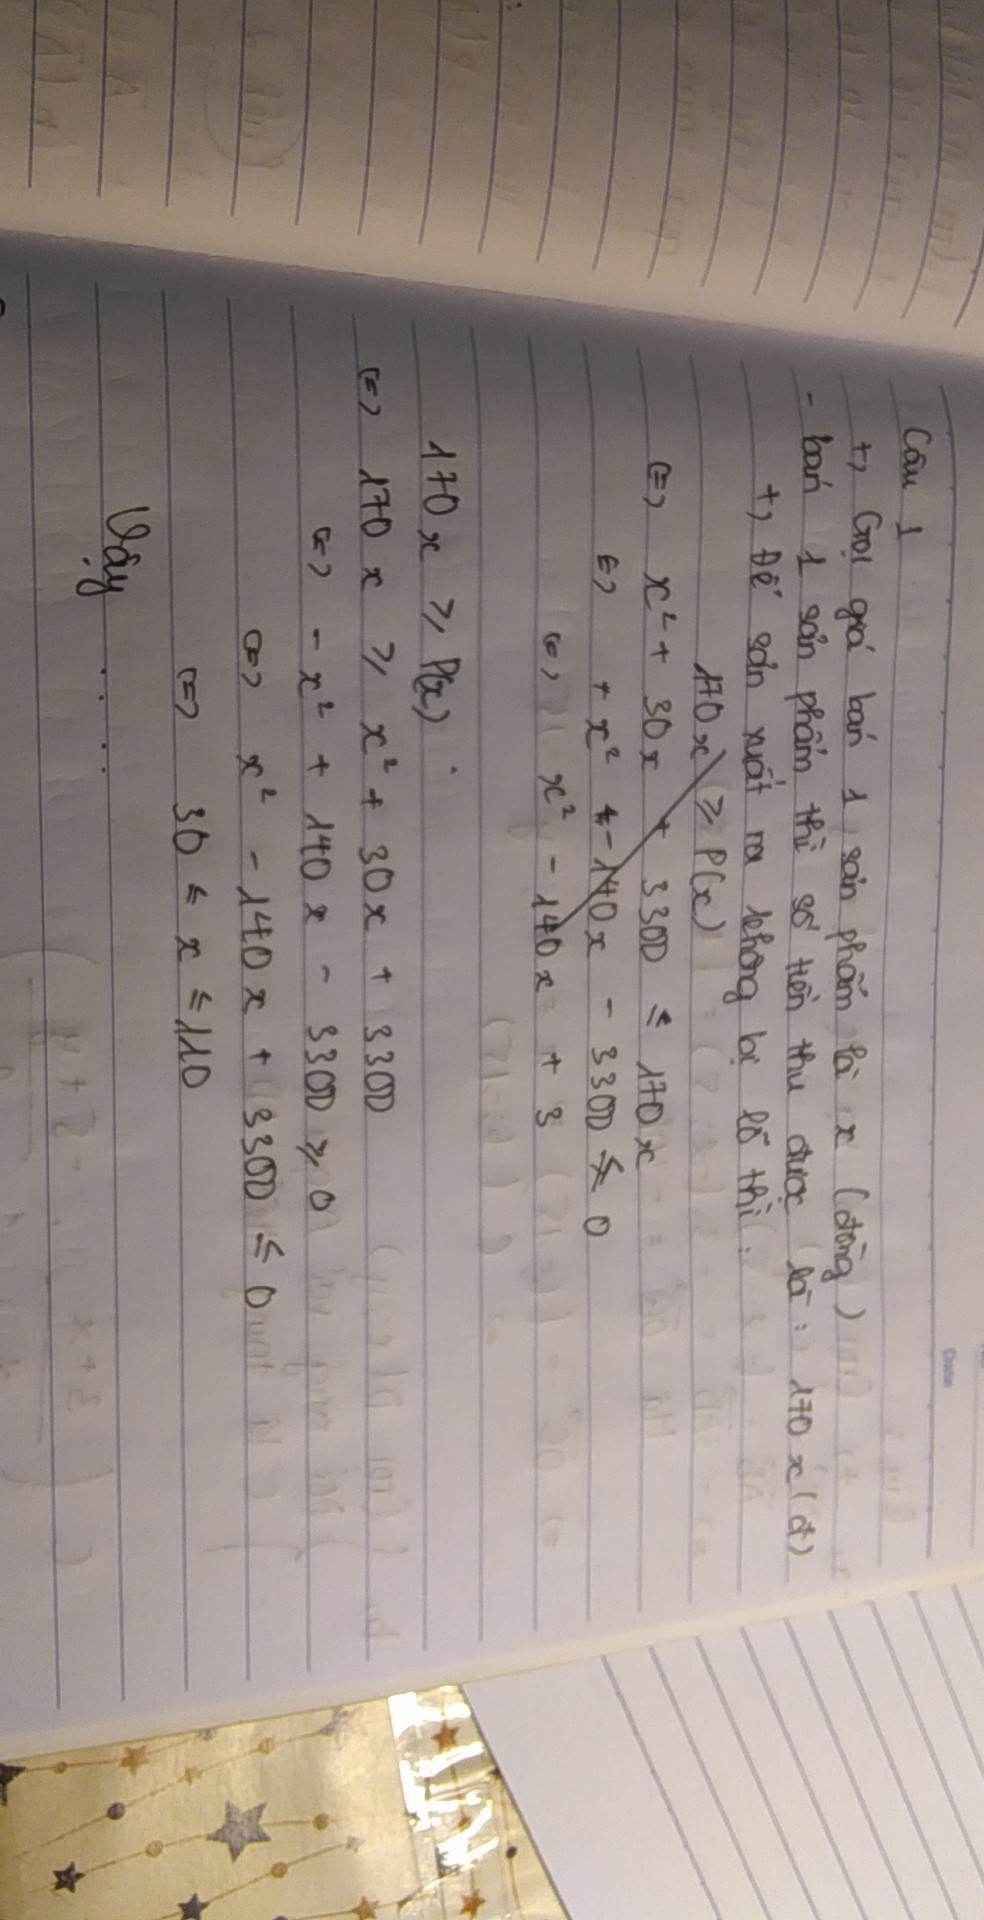 Câu 1
+, Gọi giá bán 1 sản phẩm là x (đồng)
- bán 1 sản phẩm thì số tiền thu được là : 170x (đ)
+, Để sản xuất ra không bị lỗ thì :
170x ≥ P(x)
(=) x² + 30x + 3300 ≤ 170x
(=) + x² - 140x - 3300 ≤ 0
(=) x² - 140x + 3
170x ≥ P(x)
(=) 170x ≥ x² + 30x + 3300
(=) - x² + 140x - 3300 ≥ 0
(=) x² - 140x + 3300 ≤ 0
(=) 30 ≤ x ≤ 110
Vậy ....